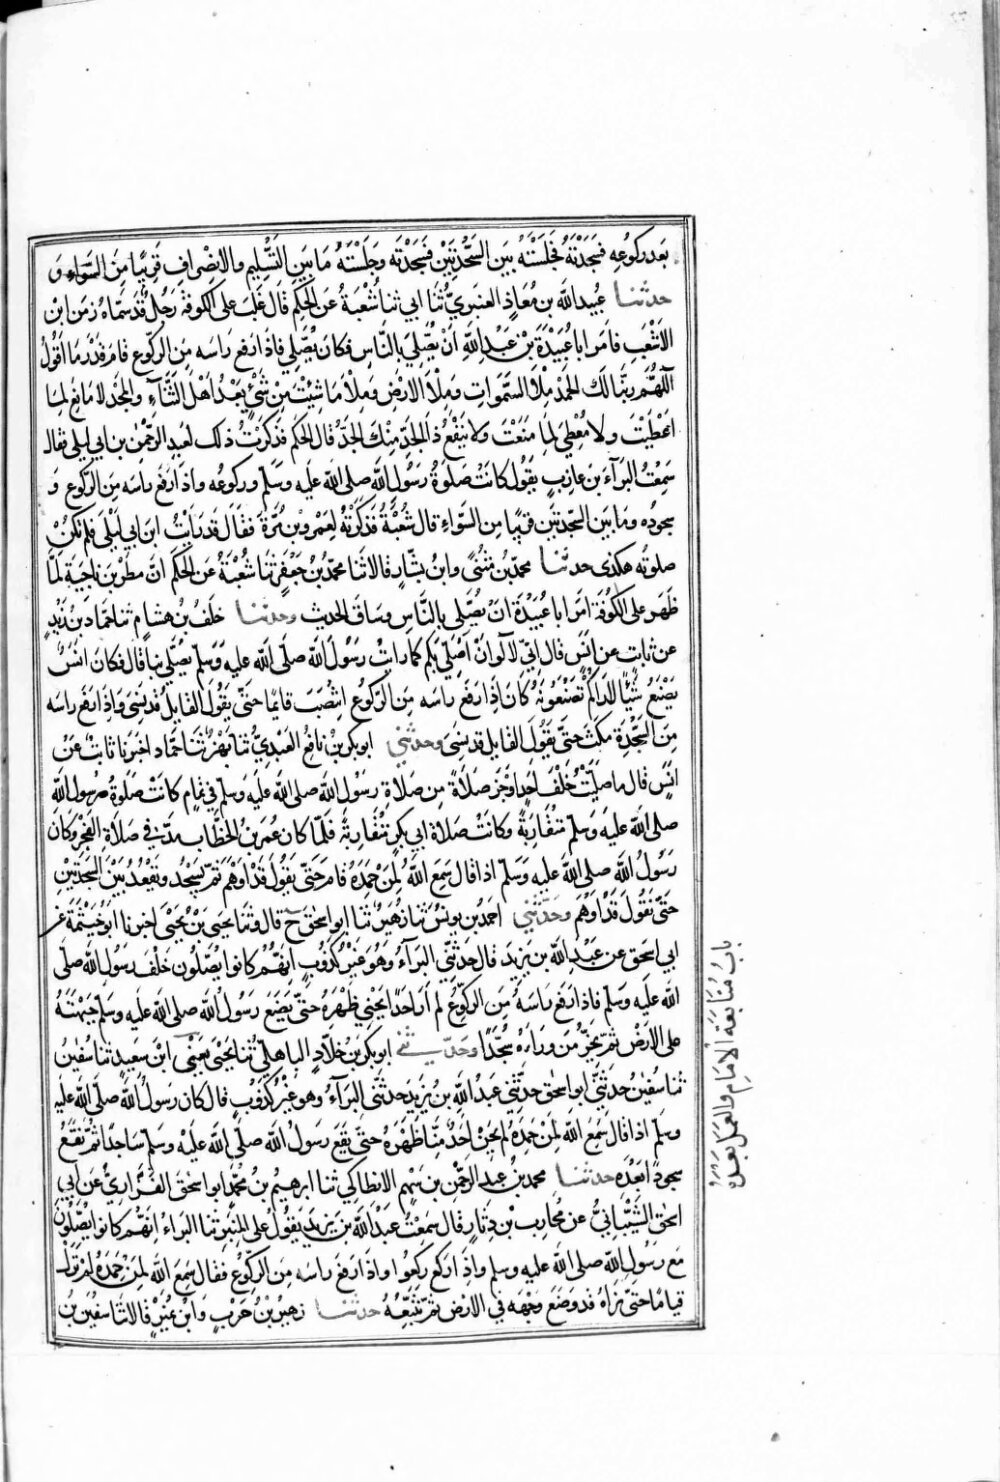 بعد ركوعه فسجدته فجلسته بين السجدتين فسجدته وجلسته ما بين التسليم والانصراف قريبا من السواء و
حدثنا عبيد الله بن معاذ العنبري ثنا ابي ثنا شعبة عن الحكم قال غلب على الكوفة رجل قد سماه زمن ابن
الاشعب فامر ابا عبيدة بن عبد الله ان يصلي بالناس فكان يصلي فاذا رفع راسه من الركوع قام قدر ما اقول
اللهم ربنا لك الحمد ملأ السموات وملأ الارض وملأ ما شئت من شئ بعد اهل الثناء والمجد لا مانع لما
اعطيت ولا معطي لما منعت ولا ينفع ذا الجد منك الجد قال الحكم فذكرت ذلك لعبد الرحمن بن ابي ليلى فقال
سمعت البرآء بن عازب يقول كانت صلوة رسول الله صلى الله عليه وسلم وركوعه واذا رفع راسه من الركوع و
سجوده وما بين السجدتين قريبا من السواء قال شعبة فذكرته لعمرو بن مرة فقال قد رايت ابن ابي ليلى فلم تكن
صلوته هكذى حدثنا محمد بن مثنى وابن بشار قالا ثنا محمد بن جعفر ثنا شعبة عن الحكم ان مطر بن ناجية لما
ظهر على الكوفة امر ابا عبيدة ان يصلي بالناس وساق الحديث وحدثنا خلف بن هشام ثنا حماد بن زيد
عن ثابت عن انس قال اني لا آلو ان اصلي بكم كما رايت رسول الله صلى الله عليه وسلم يصلي بنا قال فكان انس
يصنع شيئا لا اراكم تصنعونه كان اذا رفع راسه من الركوع انتصب قايما حتى يقول القايل قد نسي واذا رفع راسه
من السجدة مكث حتى يقول القايل قد نسي وحدثني ابو بكر بن نافع العبدي ثنا بهز ثنا حماد اخبرنا ثابت عن
انس قال ما صليت خلف احد اوجز صلاة من صلاة رسول الله صلى الله عليه وسلم في تمام كانت صلوة رسول الله
صلى الله عليه وسلم متقاربة وكانت صلاة ابي بكر متقاربة فلما كان عمر بن الخطاب مد في صلاة الفجر وكان
رسول الله صلى الله عليه وسلم اذا قال سمع الله لمن حمده قام حتى يقول قد اوهم ثم يسجد ويقعد بين السجدتين
حتى نقول قد اوهم وحدثني احمد بن يونس ثنا زهير ثنا ابو اسحق ح قال وثنا يحيى بن يحيى اخبرنا ابو خيثمة عن
ابي اسحق عن عبد الله بن يزيد قال حدثني البرآء وهو غير كذوب انهم كانوا يصلون خلف رسول الله صلى
الله عليه وسلم فاذا رفع راسه من الركوع لم ار احدا يحني ظهره حتى يضع رسول الله صلى الله عليه وسلم جبهته
على الارض ثم يخر من وراءه سجدا وحدثني ابو بكر بن خلاد الباهلي ثنا يحيى يعني ابن سعيد ثنا سفين
ثنا سفين حدثني ابو اسحق حدثني عبد الله بن يزيد حدثني البرآء وهو غير كذوب قال كان رسول الله صلى الله عليه
وسلم اذا قال سمع الله لمن حمده لم يحن احد منا ظهره حتى يقع رسول الله صلى الله عليه وسلم ساجدا ثم نقع
سجودا بعده حدثنا محمد بن عبد الرحمن بن سهم الانطاكي ثنا ابرهيم بن محمد ابو اسحق الفزاري عن ابي
اسحق الشيباني عن محارب بن دثار قال سمعت عبد الله بن يزيد يقول على المنبر ثنا البراء انهم كانوا يصلون
مع رسول الله صلى الله عليه وسلم واذا ركع ركعوا واذا رفع راسه من الركوع فقال سمع الله لمن حمده لم نزل
قياما حتى نراه قد وضع وجهه في الارض ثم نتبعه حدثنا زهير بن حرب وابن نمير قالا ثنا سفين بن
باب متابعة الامام والعمل بعده